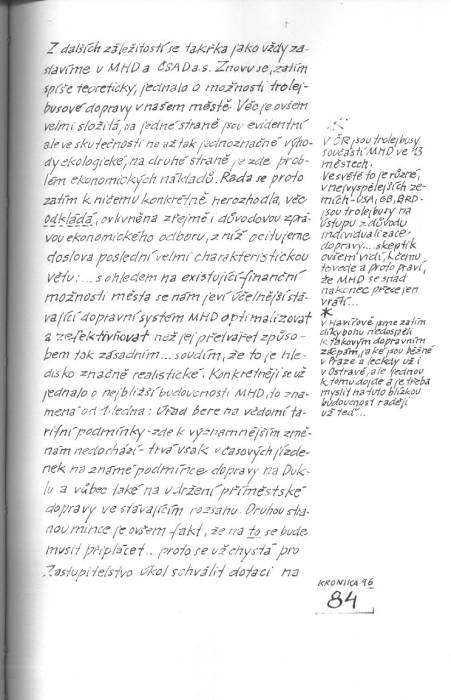 Z dalších záležitostí se takřka jako vždy za-
stavíme u MHD a ČSAD a.s. Znovu se, zatím
spíše teoreticky, jednalo o možnosti trolej-
busové dopravy v našem městě. Věc je ovšem
velmi složitá, na jedné straně jsou evidentní
ale ve skutečnosti ne až tak jednoznačné výho-
dy ekologické, na druhé straně je zde prob-
lém ekonomických nákladů. Rada se proto
zatím k ničemu konkrétně nerozhodla, věc
odkládá, ovlivněna zřejmě i důvodovou zprá-
vou ekonomického odboru, z níž ocitujeme
doslova poslední velmi charakteristickou
větu: ... s ohledem na existující finanční
možnosti města se nám jeví účelnější stá-
vající dopravní systém MHD optimalizovat
a zefektivňovat než jej přetvářet způso-
bem tak zásadním... soudím, že to je hle-
disko značně realistické. Konkrétněji se už
jednalo o nejbližší budoucnosti MHD, to zna-
mená od 1. ledna: Úřad bere na vědomí ta-
rifní podmínky - zde k významnějším změ-
nám nedochází - trvá však u časových jízde-
nek na známé podmínce dopravy na Duk-
lu a vůbec také na udržení příměstské
dopravy ve stávajícím rozsahu. Druhou stra-
nou mince je ovšem fakt, že na to se bude
muset připlácet... proto se už chystá pro
Zastupitelstvo úkol schválit dotaci na
V ČR jsou trolejbusy
součástí MHD ve 13
městech.
Ve světě to je různé,
v nejvyspělejších ze-
mích - USA, GB, BRD -
jsou trolejbusy na
ústupu z důvodu
individualizace
dopravy... skeptik
ovšem vidí, k čemu
to vede a proto praví,
že MHD se snad
nakonec přece jen
vrátí...
*
V Havířově jsme zatím
díky bohu nedospěli
k takovým dopravním
zácpám, jaké jsou běžné
v Praze a leckdy už i
v Ostravě, ale jednou
k tomu dojde a je třeba
myslit na tuto blízkou
budoucnost raději
už teď...
KRONIKA 96
84